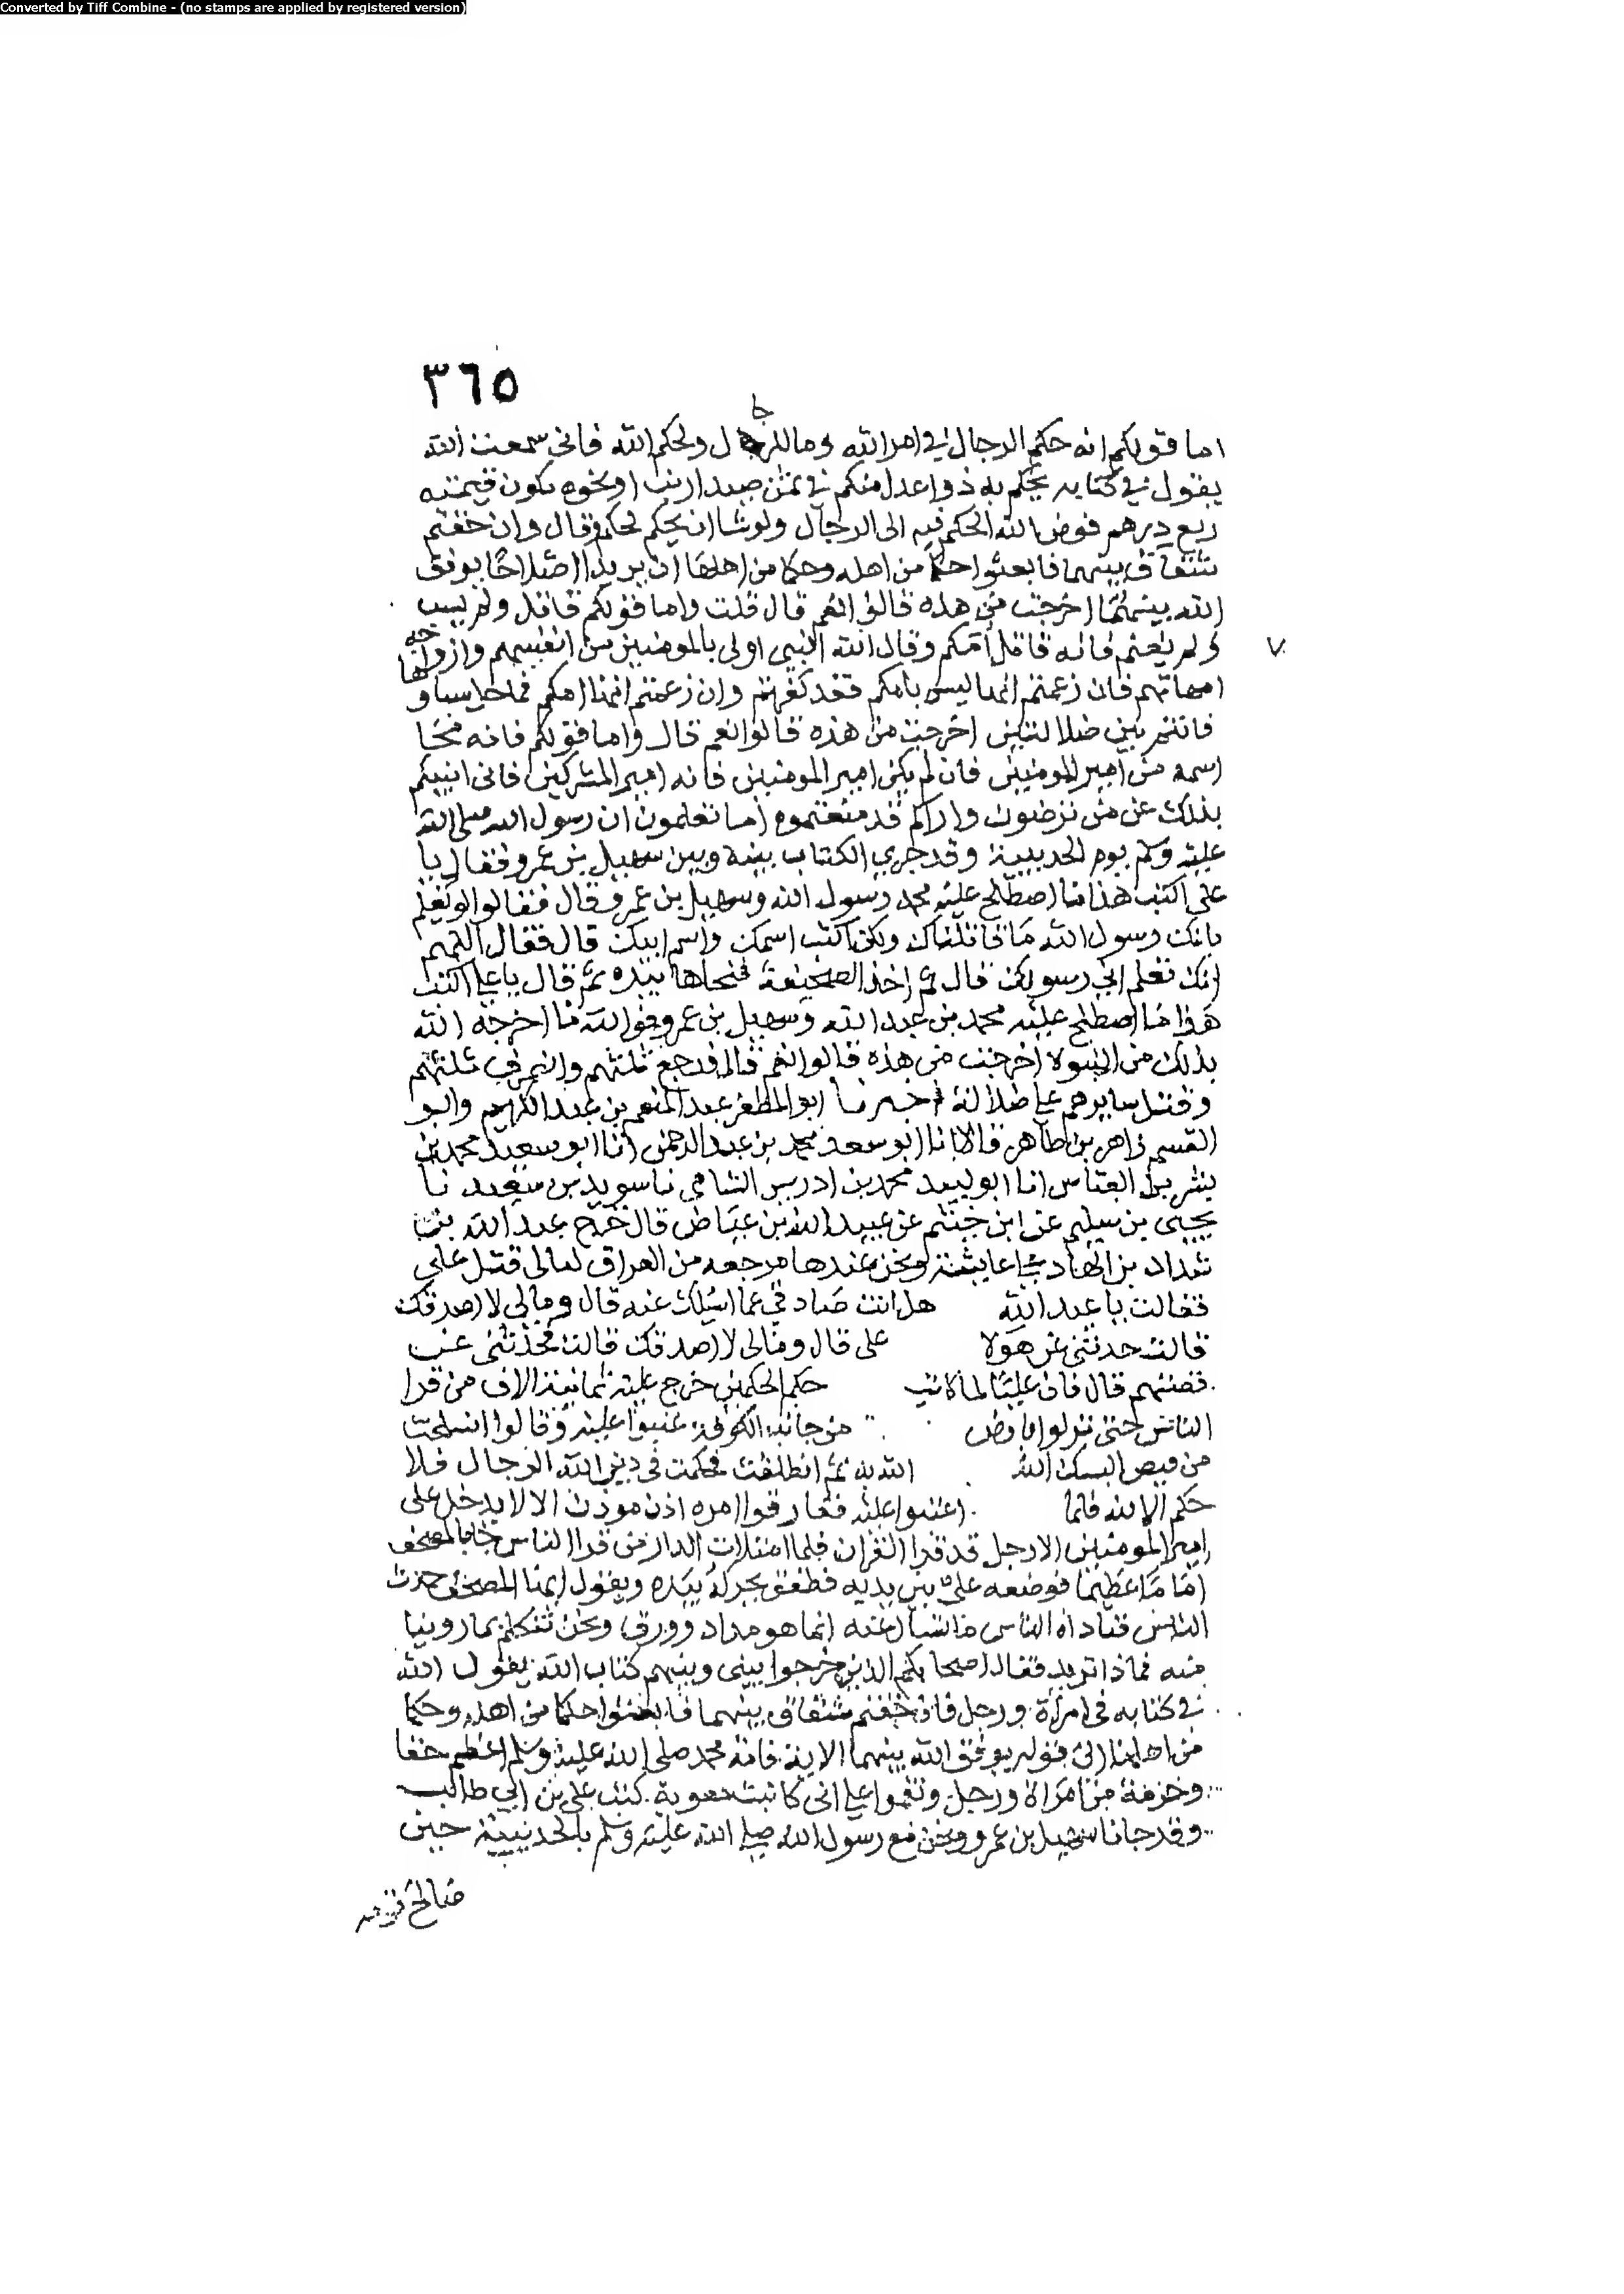 Converted by Tiff Combine - (no stamps are applied by registered version)
٣٦٥
جا
اما قولكم انه حكم الرجال في امر الله وما للرجال ولحكم الله فاني سمعت الله
يقول في كتابه يحكم به ذوا عدل منكم في ثمن صيد ارنب او نحوه يكون قيمته
ربع درهم فوض الله الحكم فيه الى الرجال ولو شا ان يحكم لحكم وقال وان خفتم
شقاق بينهما فابعثوا حكما من اهله وحكما من اهلها ان يريدا اصلاحا يوفق
الله بينهما اخرجت من هذه قالوا نعم قال قلت واما قولكم قاتل ولم يسب
ولم يغنم فانه قاتل امكم وقال الله النبي اولى بالمومنين من انفسهم وازواجه
امهاتهم فان زعمتم انها ليس بامكم فقد كفرتم وان زعمتم انها امكم فما حل سباو
فانتم بين ضلالتين اخرجت من هذه قالوا نعم قال واما قولكم فانه محا
اسمه من امير المومنين فان لم يكن امير المومنين فانه امير المشركين فاني انبيكم
بذلك عن من ترضون واراكم قد سمعتموه اما تعلمون ان رسول الله صلى الله
عليه وسلم يوم الحديبية وقد جرى الكتاب بينه وبين سهيل بن عمرو فقال يا
علي اكتب هذا ما اصطلح عليه محمد رسول الله وسهيل بن عمرو قال فقالوا لو نعلم
بانك رسول الله ما قاتلناك ولكن اكتب اسمك واسم ابيك قال فقال اللهم
انك تعلم اني رسولك قال ثم اخذ الصحيفة فمحاها بيده ثم قال يا علي اكتب
هذا ما اصطلح عليه محمد بن عبد الله وسهيل بن عمرو فوالله ما اخرجه الله
بذلك من النبوة اخرجت من هذه قالوا نعم قال فرجع ثلثهم وانصرف ثلثهم
وقتل سايرهم على ضلالة اخبرنا ابو المظفر عبد المنعم بن عبد الكريم وابو
القسم زاهر بن طاهر قالا انا ابو سعد محمد بن عبد الرحمن انا ابو سعيد محمد بن
بشر بن العباس انا ابو لبيد محمد بن ادريس الشامي نا سويد بن سعيد نا
يحيى بن سليم عن ابن خثيم عن عبيد الله بن عياض قال خرج عبد الله بن
شداد بن الهاد على عايشة ونحن عندها مرجعه من العراق ليالي قتل علي
فقالت يا عبد الله هل انت صادقي عما اسلك عنه قال ومالي لا اصدقك
قالت حدثني عن هولا علي قال ومالي لا اصدقك قالت فحدثني عن
قصتهم قال فان عليا لما كاتب حكم الحكمين خرج عليه ثمانية الاف من قرا
الناس حتى نزلوا بارض من جانب الكوفة عتبوا عليه وقالوا انسلخت
من قميص البسك الله الله به ثم انطلقت فحكمت في دين الله الرجال فلا
حكم الا لله فلما عتبوا عليه ففارقوا امره اذن موذن الا لا يدخل على
امير المومنين الا رجل قد قرا القران فلما امتلات الدار من قرا الناس جا بالمصحف
اماما عظيما فوضعه علي بين يديه فطفق يحركه بيده ويقول ايها المصحف حدث
الناس فناداه الناس ما تسال عنه انما هو مداد وورق ونحن نتكلم بما روينا
منه فماذا تريد فقال اصحابكم الذين خرجوا بيني وبينهم كتاب الله يقول الله
في كتابه في امراة ورجل فان خفتم شقاق بينهما فابعثوا حكما من اهله وحكما
من اهلها الى قوله يوفق الله بينهما الاية فامة محمد صلى الله عليه وسلم اعظم حقا
وحرمة من امراة ورجل ونقموا علي اني كاتبت معوية كتب علي بن ابي طالب
وقد جانا سهيل بن عمرو ونحن مع رسول الله صلى الله عليه وسلم بالحديبية حين
صالح قومه